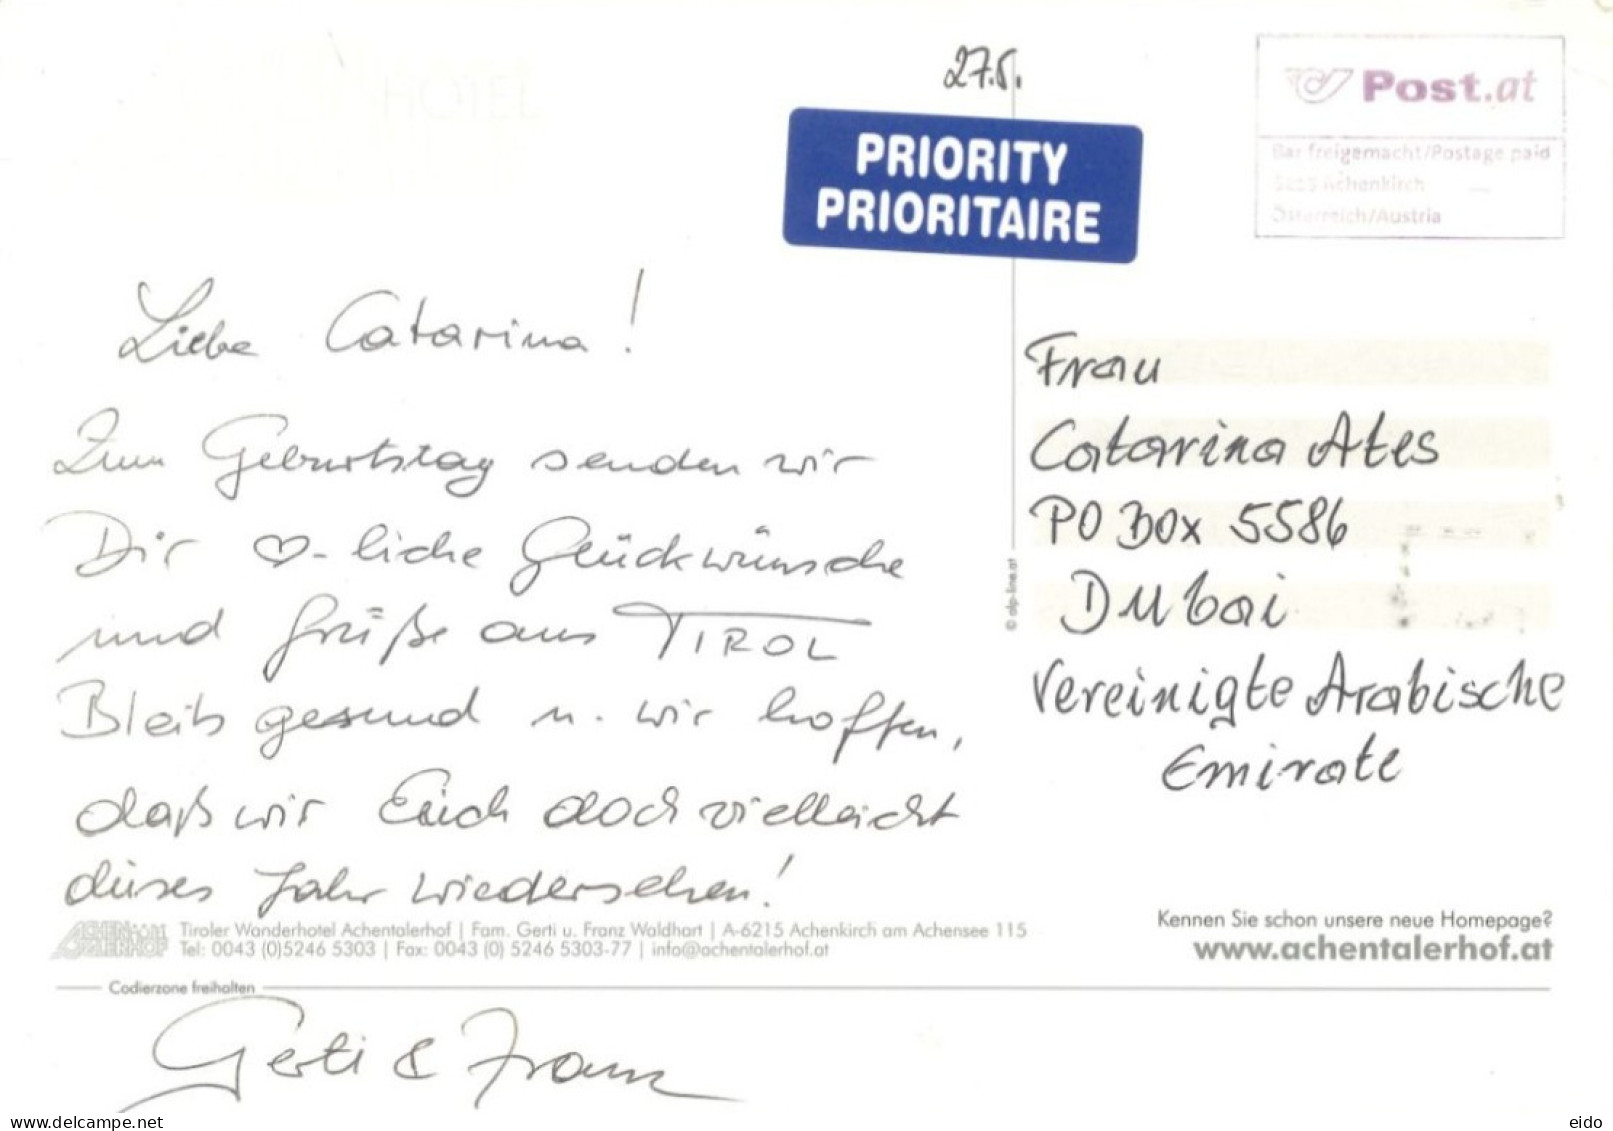 HOTEL
27.5.
Post.at
PRIORITY
PRIORITAIRE
Bar freigemacht/Postage paid
6215 Achenkirch
Österreich/Austria
Liebe Catarina!
Zum Geburtstag senden wir
Dir ♡-liche Glückwünsche
und Grüße aus TIROL
Bleib gesund u. wir hoffen,
daß wir Euch doch vielleicht
dieses Jahr wiedersehen!
© alp-line.at
Frau
Catarina Ates
PO Box 5586
Dubai
Vereinigte Arabische
Emirate
ACHENTALERHOF
Tiroler Wanderhotel Achentalerhof | Fam. Gerti u. Franz Waldhart | A-6215 Achenkirch am Achensee 115
Tel: 0043 (0)5246 5303 | Fax: 0043 (0) 5246 5303-77 | info@achentalerhof.at
Kennen Sie schon unsere neue Homepage?
www.achentalerhof.at
Codierzone freihalten
Gerti & Franz
www.delcampe.net
eido